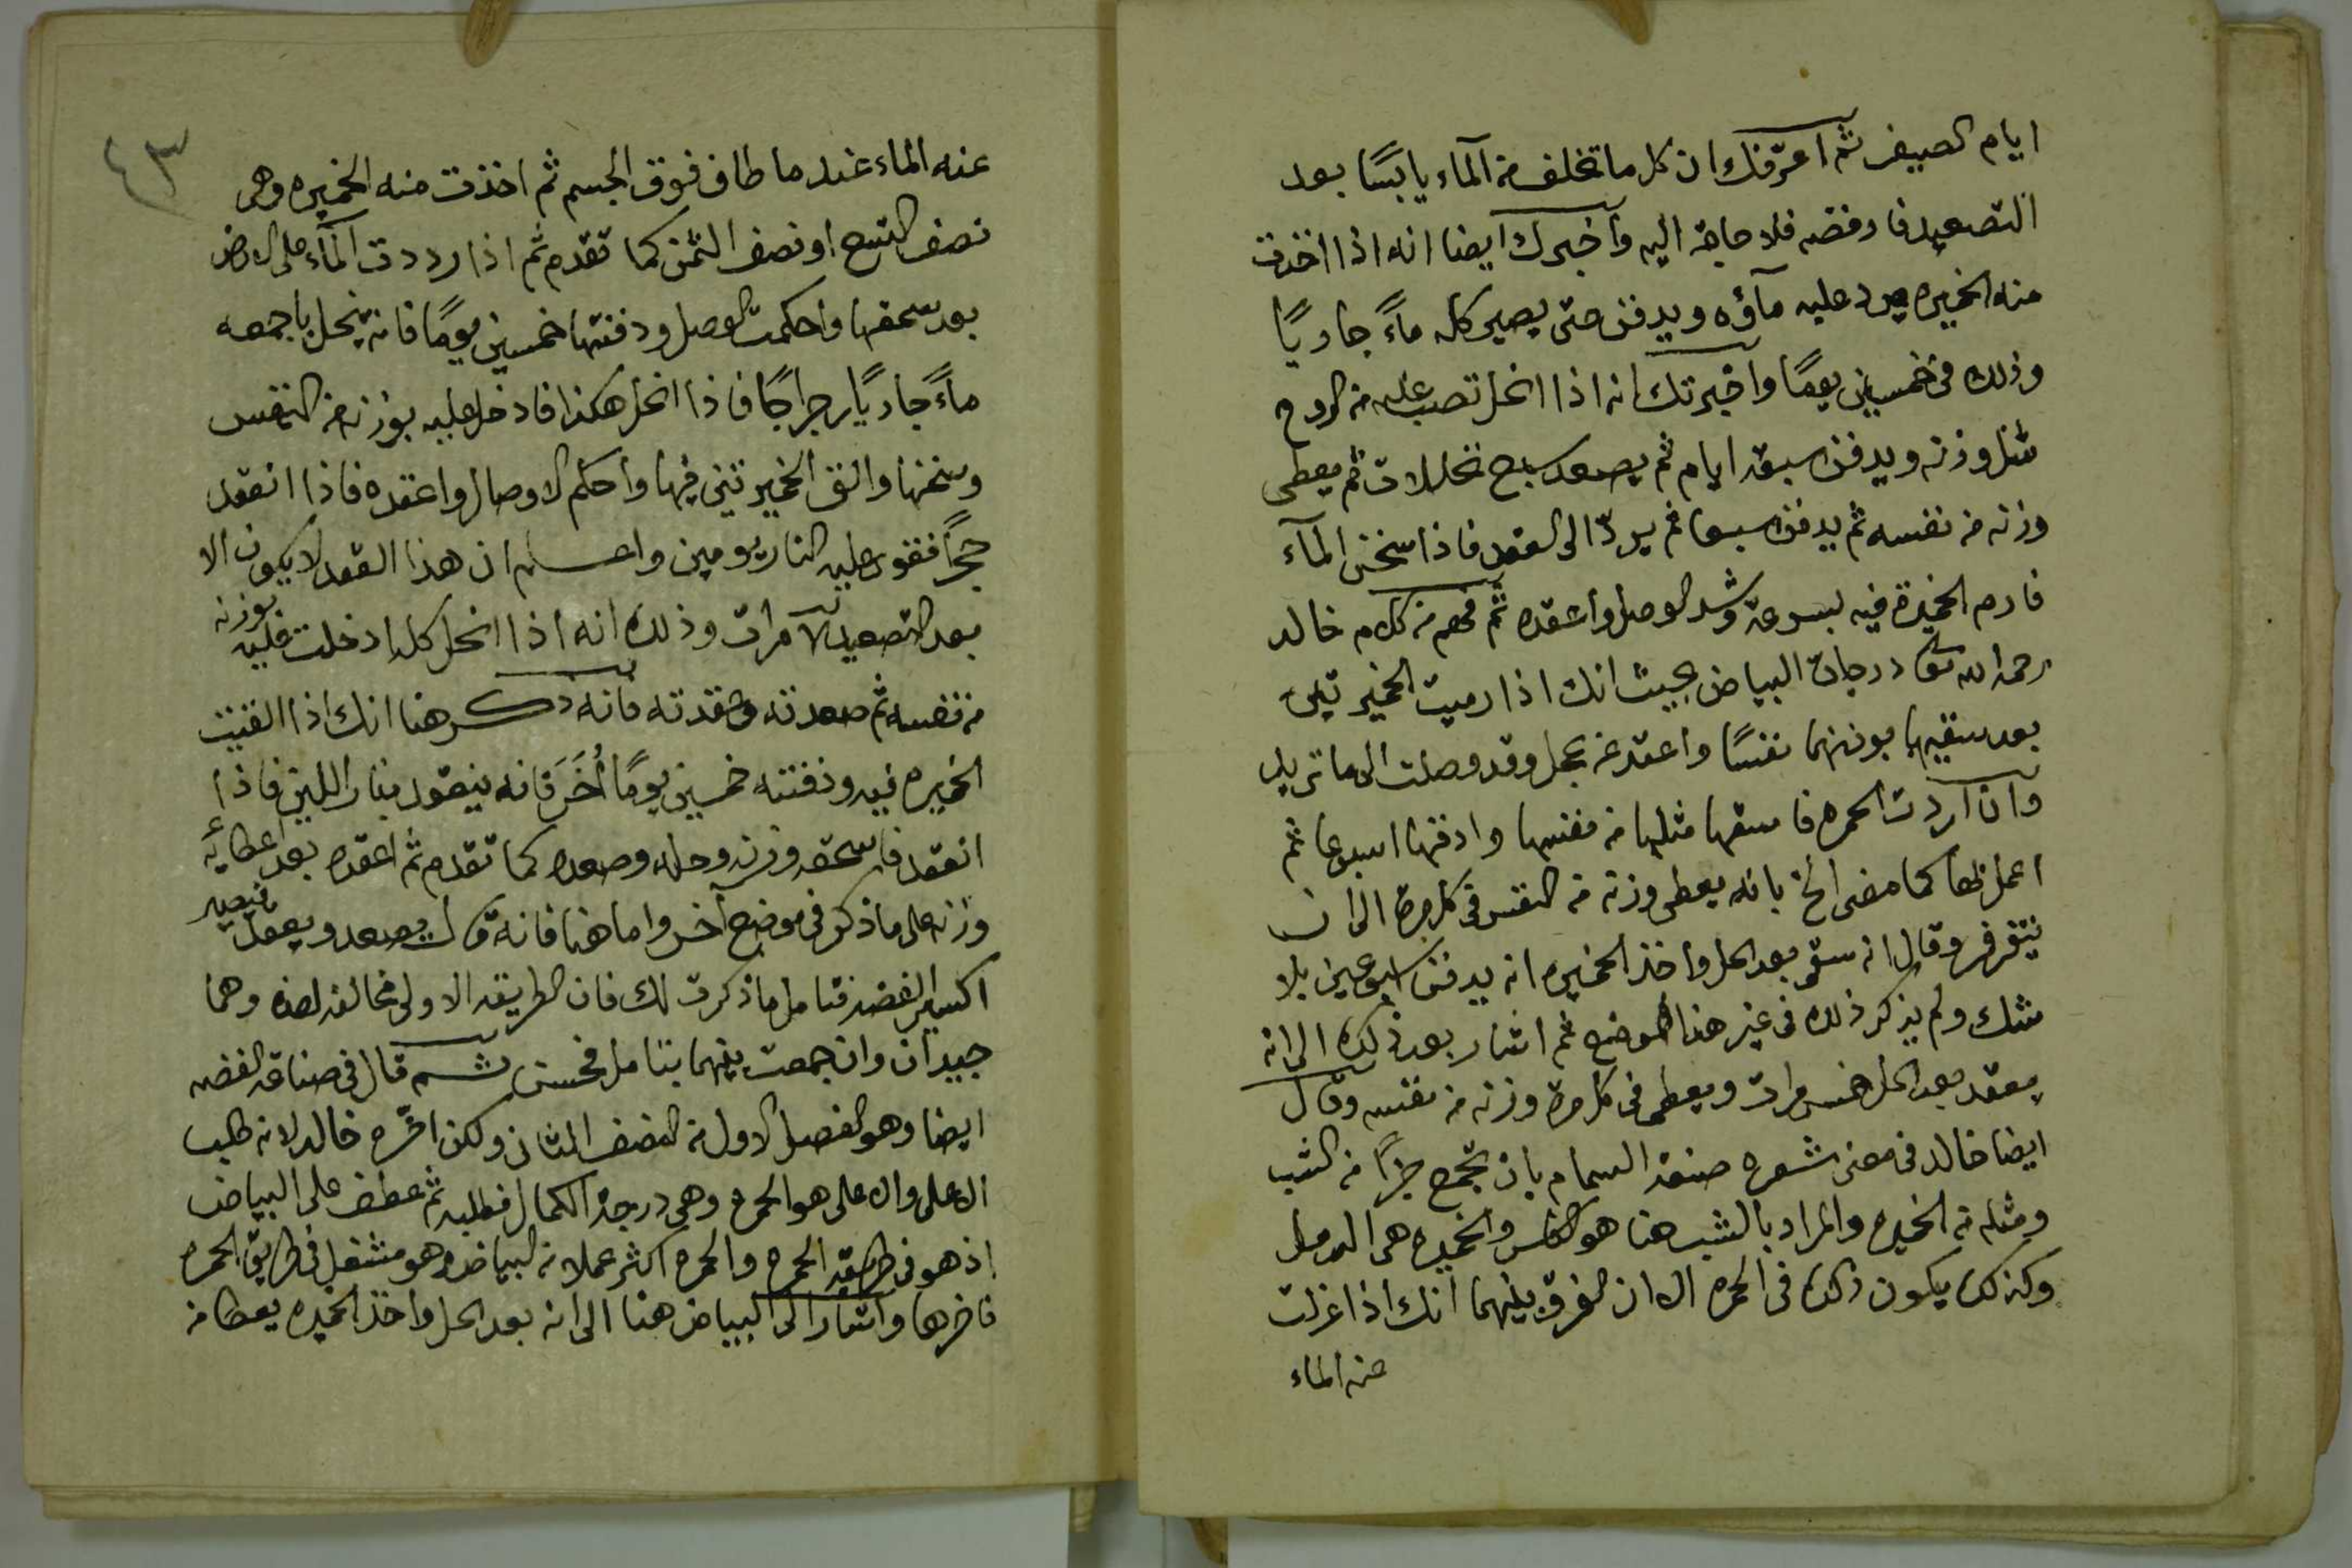 ايام الصيف ثم اعرّفنك ان كل ما تخلف من الماء يابسًا بعد
التصعيد فارفضه فلا حاجة اليه واخبرك ايضا انه اذا اخذت
منه الخميره يرد عليه مآؤه ويدفن حتى يصير كله ماءً جاريًا
وذلك فى خمسين يومًا واخبرتك انه اذا انحل تصب عليه من الروح
مثل وزنه ويدفن سبعة ايام ثم يصعد سبع تحليلات ثم يعطى
وزنه من نفسه ثم يدفن سبعا ثم يردّ الى العقد فاذا سخن المآء
فارم الخميرة فيه بسرعة وشد الوصل واعقده ثم فهم من كلام خالد
رحمه الله تعا درجات البياض بحيث انك اذا رميت الخميرتين
بعد سقيهما بوزنهما نفسًا واعقد عن عجل وقد وصلت الى ما تريد
وان اردت الحمره فاسقها مثليها من نفسها وادفنها اسبوعا ثم
اعمل بها كما مضى الخ بانه يعطى وزنه من النفس فى كل مرة الى ان
يتقرفر وقال انه سقى بعد الحل واخذ الخميره انه يدفن اسبوعين بلا
شك ولم يذكر ذلك فى غير هذا الموضع ثم اشار بعد ذلك الى انه
يعقد بعد الحل خمس مرات ويعطى فى كل مرة وزنه من نفسه وقال
ايضا خالد فى معنى شعره صنعة السمام بان تجمع جزأ من الشب
ومثله من الخميره والمراد بالشب هنا هو النفس والخميره هى الرمل
وكذلك يكون ذلك فى الحمره الا ان الفرق بينهما انك اذا عزلت
عنه الماء
٤٣
عنه الماء عند ما طاف فوق الجسم ثم اخذت منه الخميره وهى
نصف التسع او نصف الثمن كما تقدم ثم اذا رددت المآء على الارض
بعد سحقها واحكمت الوصل ودفنتها خمسين يومًا فانه ينحل باجمعه
ماءً جاريًا رجراجًا فاذا انحل هكذا فادخل عليه بوزنه من النفس
وسخنها والق الخميرتين فيها واحكم الاوصال واعقده فاذا انعقد
حجرًا فقو عليه النار يومين واعلم ان هذا العقد لا يكون الا
بعد التصعيد مرات وذلك انه اذا انحل كله ادخلت عليه بوزنه
من نفسه ثم صعدته وعقدته فانه ذكر هنا انك اذا القيت
الخميره فيه ودفنته خمسين يومًا أُخَرَ فانه ينعقد بنار اللين فاذا
انعقد فاسحقه وزنه وحله وصعده كما تقدم ثم اعقده بعد اعطائه
وزنه على ما ذكر فى موضع آخر واما هنا فانه قال يصعد ويعقد فيصير
اكسير الفضه فتامل ما ذكرت لك فان الطريقه الاولى مخالفه لهذه وهما
جيدان وان جمعت بينهما بتامل فحسن ثم قال فى صناعة الفضه
ايضا وهو الفصل الاول من النصف الثان ولكن اخره خالد لانه طلب
الاعلى والاعلى هو الحمره وهى درجة الكمال فطلبه ثم عطف على البياض
اذ هو فى طريقة الحمره والحمره اكثر عملا من البياض وهو مشتغل فى طريق الحمره
فاخرها واشار الى البياض هنا الى انه بعد الحل واخذ الخميره يعطا من